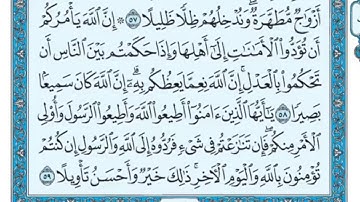 أَزْوَٰجٌ مُّطَهَّرَةٌ ۖ وَنُدْخِلُهُمْ ظِلًّا ظَلِيلًا ٥٧ ۞ إِنَّ ٱللَّهَ يَأْمُرُكُمْ
أَن تُؤَدُّوا۟ ٱلْأَمَٰنَٰتِ إِلَىٰٓ أَهْلِهَا وَإِذَا حَكَمْتُم بَيْنَ ٱلنَّاسِ أَن
تَحْكُمُوا۟ بِٱلْعَدْلِ ۚ إِنَّ ٱللَّهَ نِعِمَّا يَعِظُكُم بِهِۦٓ ۗ إِنَّ ٱللَّهَ كَانَ سَمِيعًۢا
بَصِيرًا ٥٨ يَٰٓأَيُّهَا ٱلَّذِينَ ءَامَنُوٓا۟ أَطِيعُوا۟ ٱللَّهَ وَأَطِيعُوا۟ ٱلرَّسُولَ وَأُو۟لِى
ٱلْأَمْرِ مِنكُمْ ۖ فَإِن تَنَٰزَعْتُمْ فِى شَىْءٍ فَرُدُّوهُ إِلَى ٱللَّهِ وَٱلرَّسُولِ إِن كُنتُمْ
تُؤْمِنُونَ بِٱللَّهِ وَٱلْيَوْمِ ٱلْءَاخِرِ ۚ ذَٰلِكَ خَيْرٌ وَأَحْسَنُ تَأْوِيلًا ٥٩